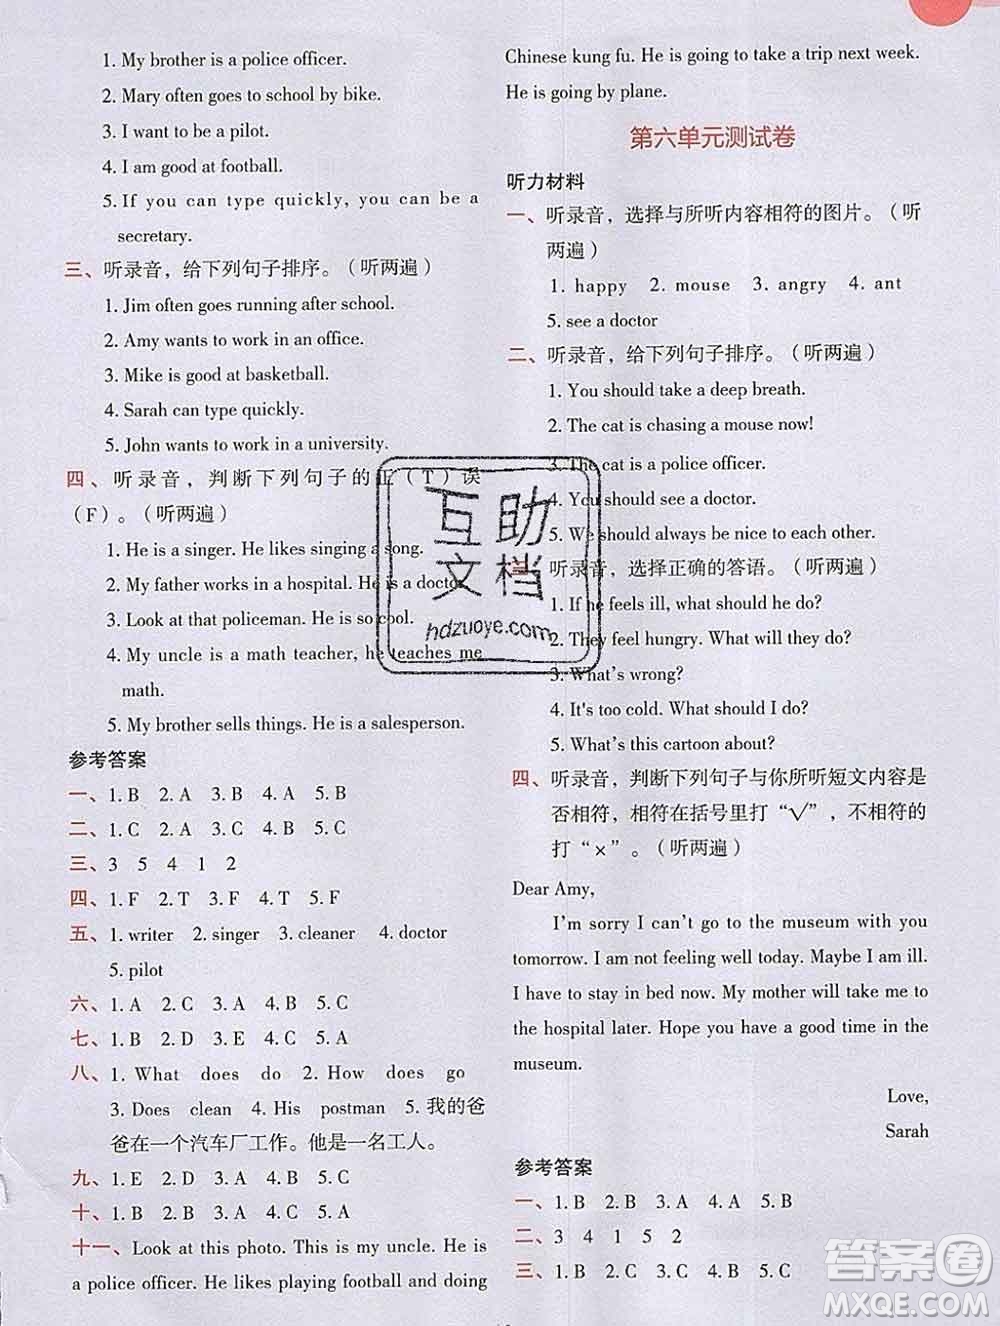 1. My brother is a police officer.
2. Mary often goes to school by bike.
3. I want to be a pilot.
4. I am good at football.
5. If you can type quickly, you can be a
secretary.
三、听录音，给下列句子排序。（听两遍）
1. Jim often goes running after school.
2. Amy wants to work in an office.
3. Mike is good at basketball.
4. Sarah can type quickly.
5. John wants to work in a university.
四、听录音，判断下列句子的正（T）误
（F）。（听两遍）
1. He is a singer. He likes singing a song.
2. My father works in a hospital. He is a doctor.
3. Look at that policeman. He is so cool.
4. My uncle is a math teacher, he teaches me
math.
5. My brother sells things. He is a salesperson.
参考答案
一、1. B 2. A 3. B 4. A 5. B
二、1. C 2. A 3. C 4. B 5. C
三、3 5 4 1 2
四、1. F 2. T 3. F 4. T 5. F
五、1. writer 2. singer 3. cleaner 4. doctor
5. pilot
六、1. A 2. C 3. A 4. B 5. C
七、1. B 2. D 3. E 4. C 5. A
八、1. What does do 2. How does go
3. Does clean 4. His postman 5. 我的爸
爸在一个汽车厂工作。他是一名工人。
九、1. E 2. D 3. A 4. B 5. C
十、1. B 2. D 3. E 4. C 5. A
十一、Look at this photo. This is my uncle. He is
a police officer. He likes playing football and doing
Chinese kung fu. He is going to take a trip next week.
He is going by plane.
第六单元测试卷
听力材料
一、听录音，选择与所听内容相符的图片。（听
两遍）
1. happy 2. mouse 3. angry 4. ant
5. see a doctor
二、听录音，给下列句子排序。（听两遍）
1. You should take a deep breath.
2. The cat is chasing a mouse now!
3. The cat is a police officer.
4. You should see a doctor.
5. We should always be nice to each other.
三、听录音，选择正确的答语。（听两遍）
1. If he feels ill, what should he do?
2. They feel hungry. What will they do?
3. What's wrong?
4. It's too cold. What should I do?
5. What's this cartoon about?
四、听录音，判断下列句子与你所听短文内容是
否相符，相符在括号里打“√”，不相符的
打“×”。（听两遍）
Dear Amy,
I'm sorry I can't go to the museum with you
tomorrow. I am not feeling well today. Maybe I am ill.
I have to stay in bed now. My mother will take me to
the hospital later. Hope you have a good time in the
museum.
Love,
Sarah
参考答案
一、1. B 2. B 3. A 4. A 5. B
二、3 4 1 5 2
三、1. B 2. C 3. A 4. B 5. C
互助
文档
hdzuoye.com
答案卷
MXQE.COM